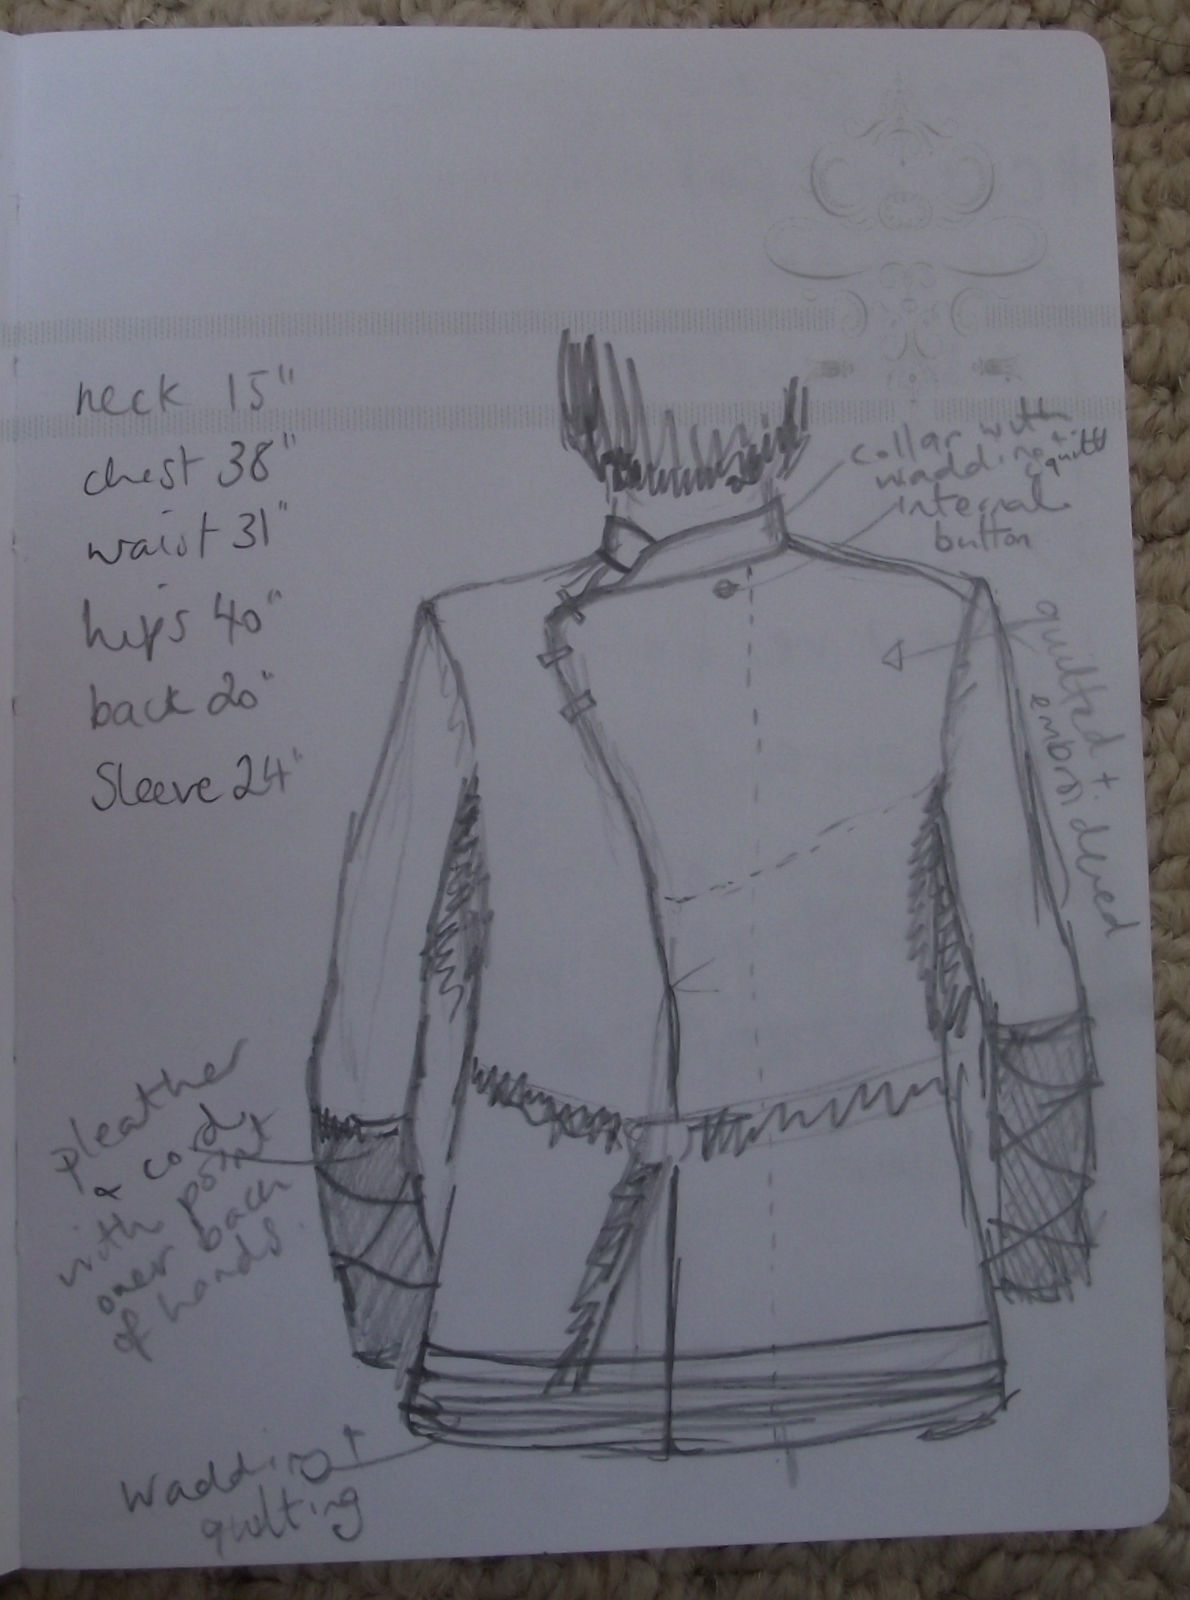 neck 15"
chest 38"
waist 31"
hips 40"
back 20"
Sleeve 24"
collar with
wadding + quilt
internal
button
quilted +
embroidered
pleather
& cord
with point
over back
of hands.
Wadding +
quilting